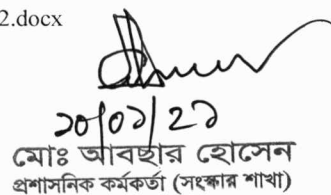 2.docx
২০/০১/২১
মোঃ আবছার হোসেন
প্রশাসনিক কর্মকর্তা (সংস্কার শাখা)